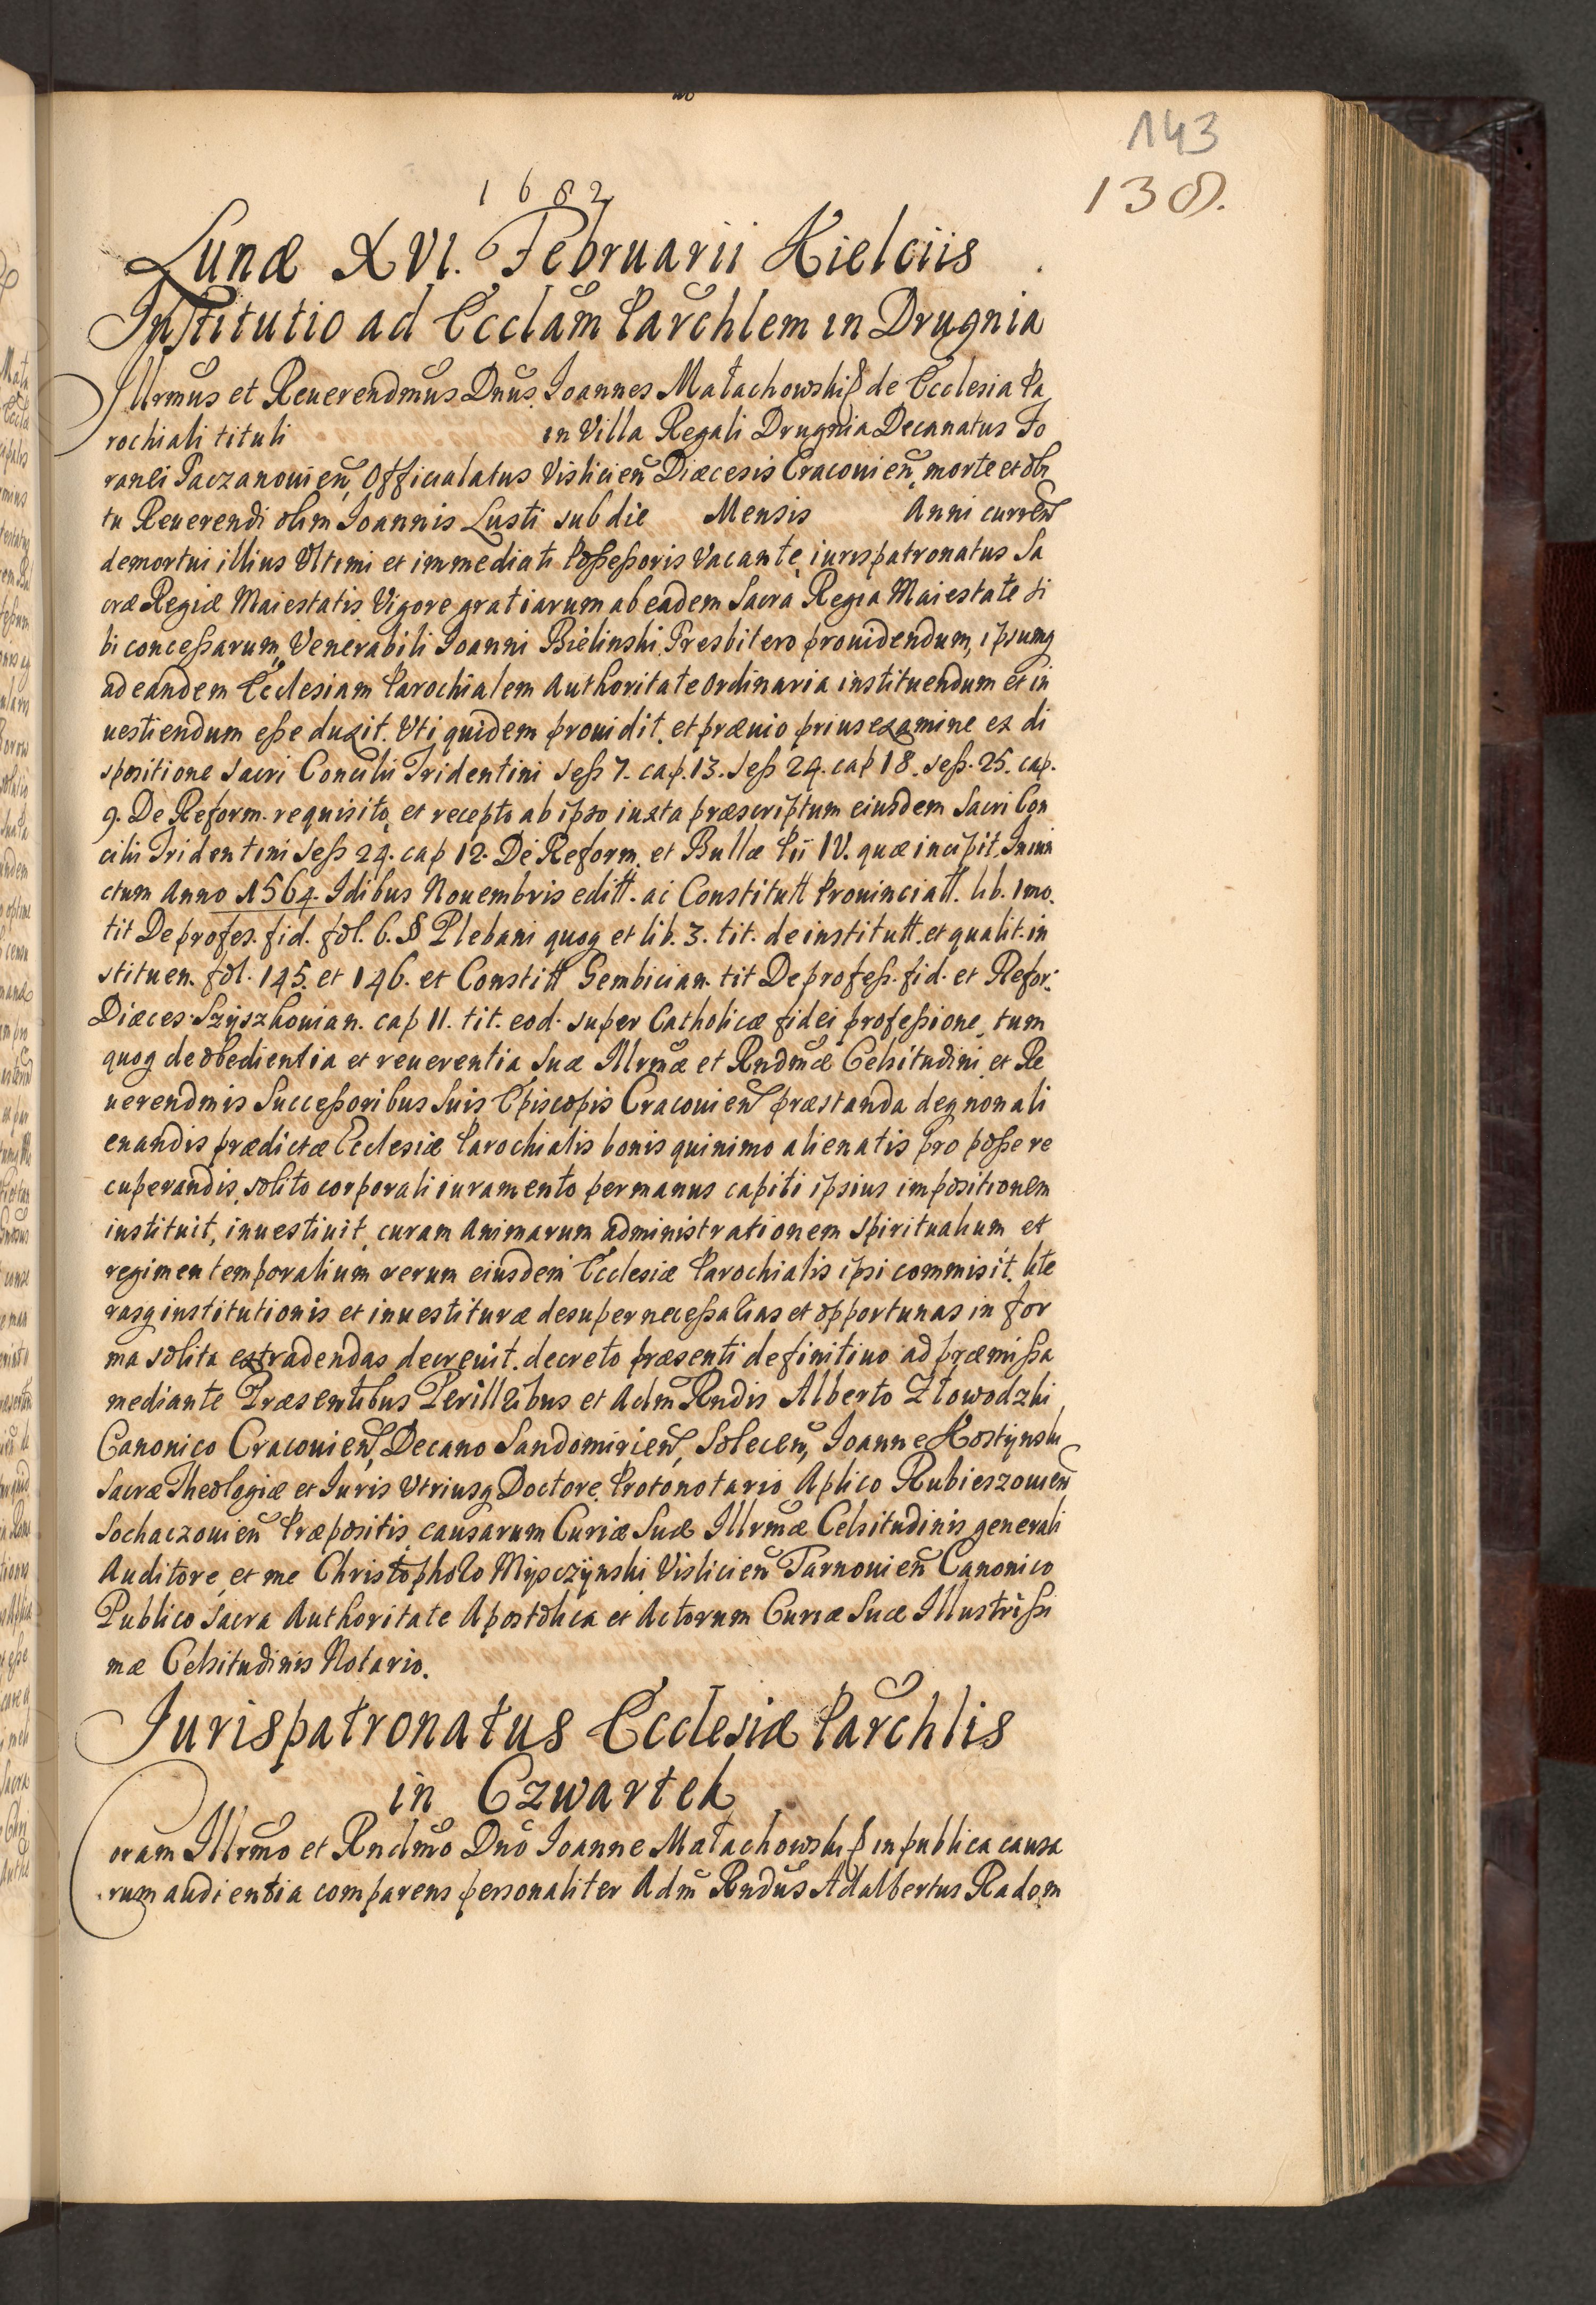 143
138.
1682
Lunæ XVI. Februarii Kielciis
Institutio ad Eccłam Parchlem in Drugnia
Illrmus et Reuerendmus Dnus Joannes Małachowski de Ecclesia Pa
rochiali tituli in Villa Regali Drugnia Decanatus Fo
ranei Paczanouien Officialatus Visliciен Diæcesis Cracouien, morte et obi
tu Reuerendi olim Joannis Lusti sub die Mensis Anni curren
demortui illius Vltimi et immediati Possessoris Vacante, iurispatronatus Sa
cræ Regiæ Maiestatis Vigore gratiarum ab eadem Sacra Regia Maiestate si
bi concessarum, Venerabili Joanni Bielinski Presbitero prouidendum, ipsumq
ad eandem Ecclesiam Parochialem Authoritate Ordinaria instituendum et in
uestiendum esse duxit. Vti quidem prouidit, et præuio prius examine ex di
spositione Sacri Concilii Tridentini Sess 7. cap. 13. Sess 24. cap 18. sess. 25. cap.
9. De Reform. requisito, et recepto ab ipso iuxta præscriptum eiusdem Sacri Con
cilii Tridentini Sess 24. cap 12. De Reform. et Bullæ Pii IV. quæ incipit, Iniun
ctum Anno 1564. Idibus Nouembris editt. ac Constitutt Prouinciatt. lib. 1mo.
tit De profes. fid. fol. 6. § Plebani quoq et lib. 3. tit. de institutt. et qualit. in
stituen. fol. 145. et 146. et Constitt Gembician. tit De profess. fid. et Refor.
Diæces. Szyszkouian. cap II. tit. eod. super Catholicæ fidei professione, tum
quoq de obedientia et reuerentia Suæ Illrmæ et Rndmæ Celsitudini et Re
uerendmis Successoribus Suis Episcopis Cracouien præstanda deq non ali
enandis prædictæ Ecclesiæ Parochialis bonis quinimo alienatis pro posse re
cuperandis, solito corporali iuramento per manus capiti ipsius impositionem
instituit, inuestiuit, curam Animarum administrationem Spiritualium et
regimen temporalium rerum eiusdem Ecclesiæ Parochialis ipsi commisit. lite
rasq institutionis et inuestituræ desuper necessarias et opportunas in for
ma solita extradendas decreuit. decreto præsenti definitiuo ad præmissa
mediante Præsentibus Perillribus et Adm Rndis Alberto Złowodzki
Canonico Cracouien, Decano Sandomirien, Solecen, Joanne Kostynski
Sacræ Theologiæ et Iuris Vtriusq Doctore Protonotario Aplico Rubieszouien
Sochaczouien Præpositis, causarum Curiæ Suæ Illrmæ Celsitudinis generali
Auditore, et me Christophoro Mysczynski Vislicien Tarnouien Canonico
Publico Sacra Authoritate Apostolica et Actorum Curiæ Suæ Illustrissi
mæ Celsitudinis Notario.
Jurispatronatus Ecclesiæ Parchlis
in Czwartek
Coram Illrmo et Rndmo Dno Joanne Małachowski in publica causa
rum audientia comparens personaliter Adm Rndus Adalbertus Radom